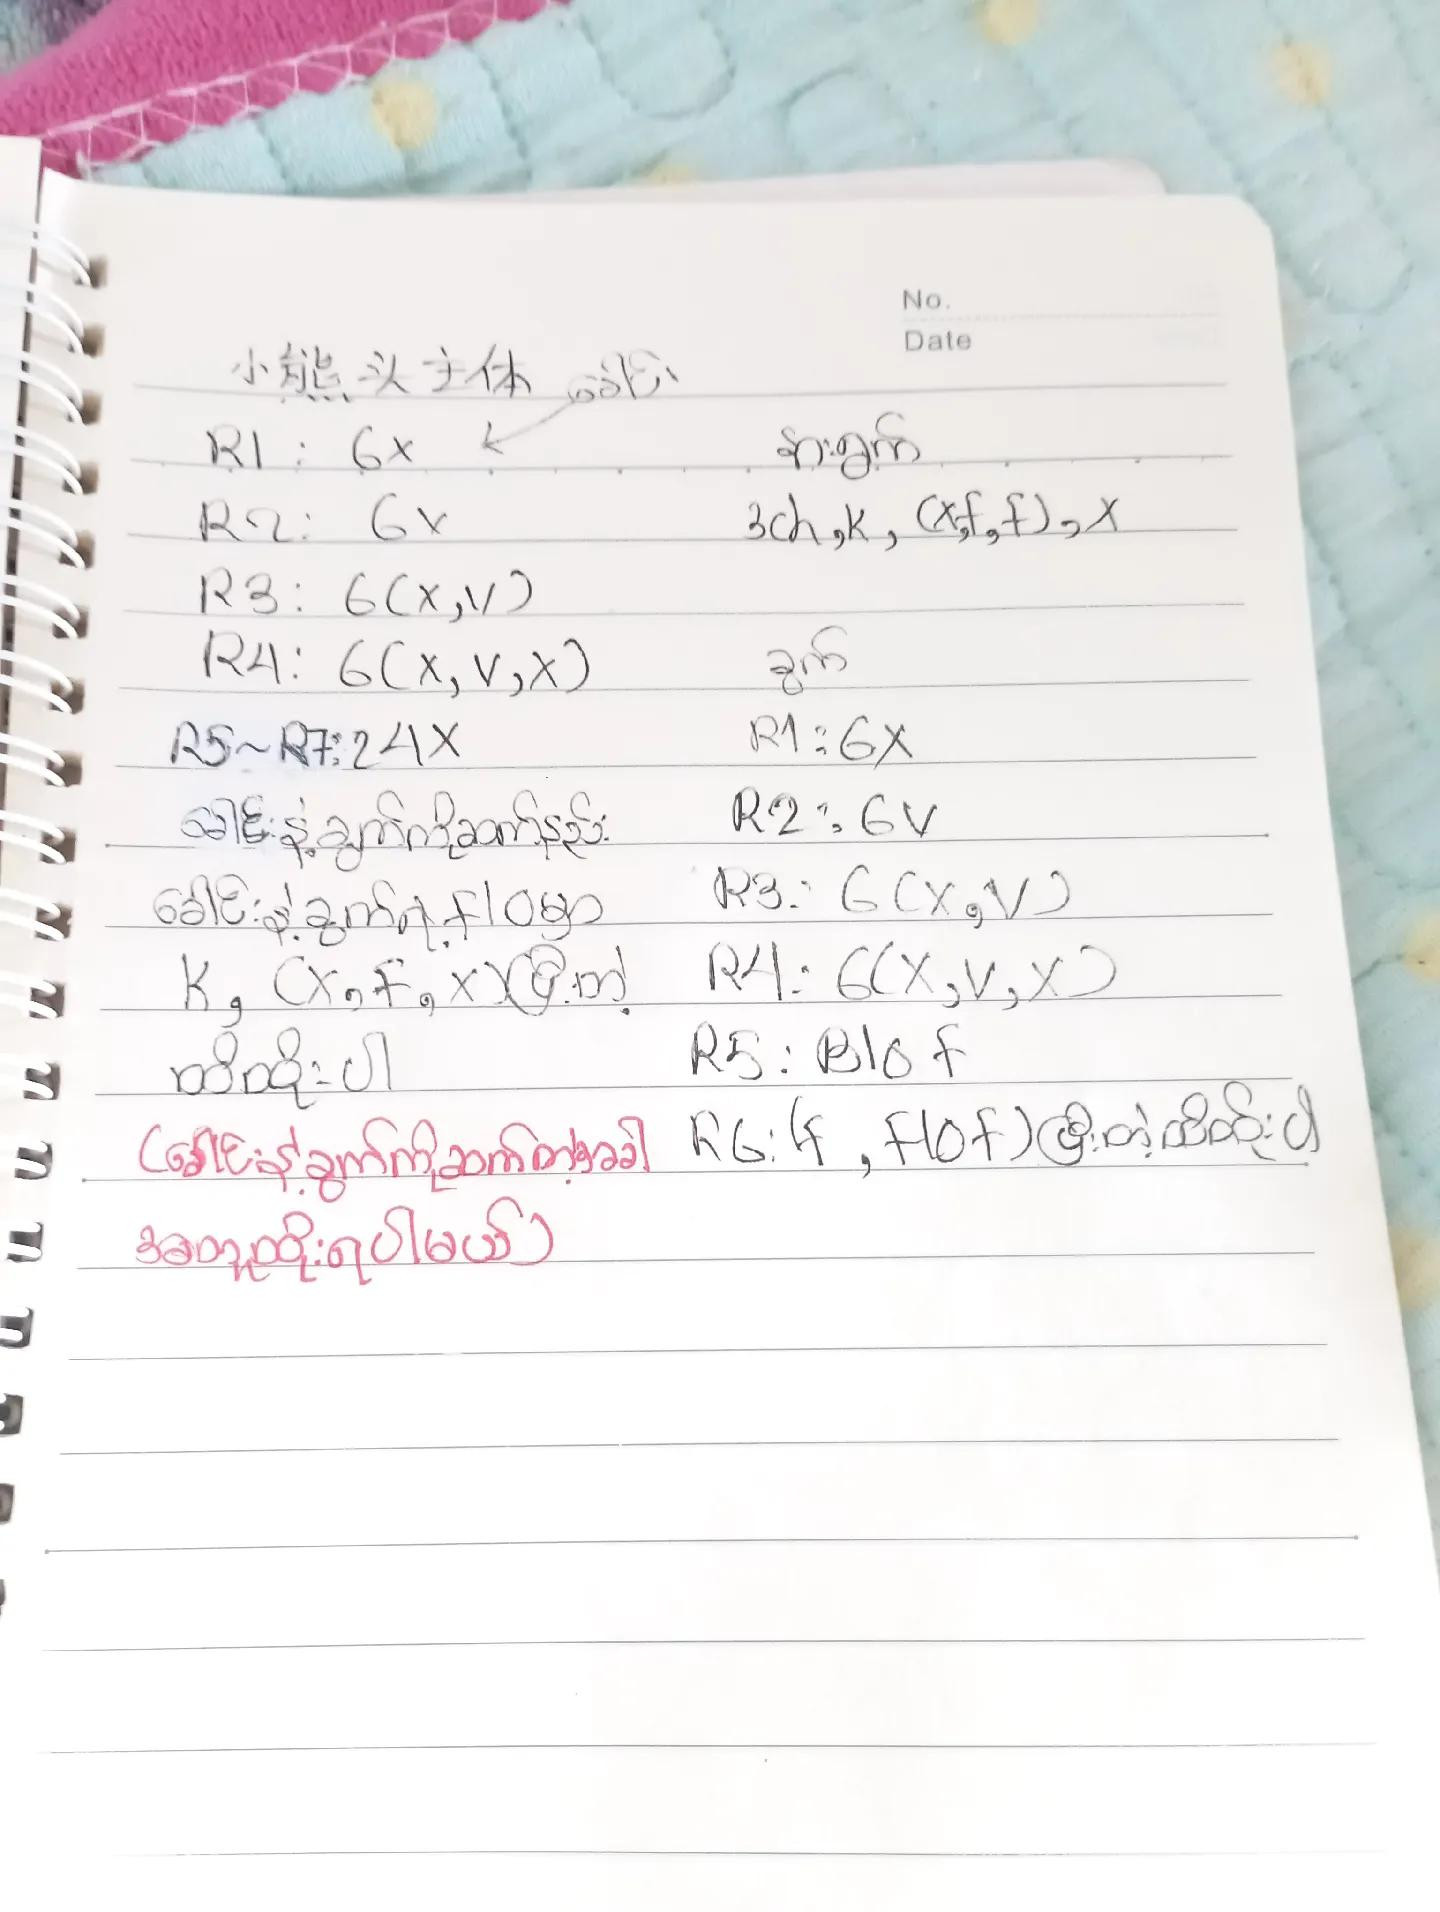 No.
Date
小熊头主体 ခေါင်း
R1: 6x
R2: 6v
R3: 6(x,v)
R4: 6(x,v,x)
R5~R7: 24x
ခေါင်းနဲ့ခွက်ကိုဆက်နည်း
ခေါင်းနဲ့ခွက်ရဲ့ flo မှာ
K, (x, f, x) ပြီးတဲ့
ထိထိုးပါ
(ခေါင်းနဲ့ခွက်ကိုဆက်တဲ့အခါ
အတူထိုးရပါမယ်)
နားရွက်
3ch,k, (x,f,f),x
ခွက်
R1: 6x
R2: 6v
R3: 6(x,v)
R4: 6(x,v,x)
R5: Blo f
R6: (f, flo f) ပြီးတဲ့ထိထိုးပါ